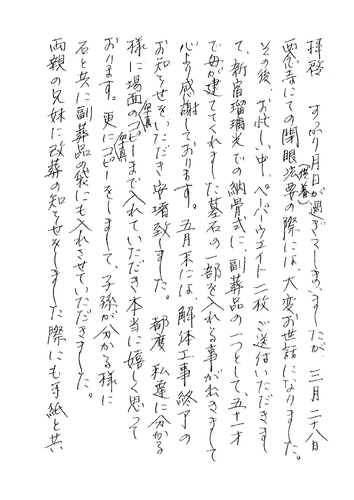 拝啓　すっかり月日が過ぎてしまいましたが、三月二十八日
恩念寺にての閉眼法要(供養)の際には、大変お世話になりました。
その後、お忙しい中、ペーパーウエイト二枚ご送付いただきまし
て、新宿瑠璃光での納骨式に、副葬品の一つとして、五十一才
で母が建ててくれました墓石の一部を入れる事が出来まして
心より感謝しております。五月末には解体工事終了の
お知らせをいただき安堵致しました。都度、私達に分かる
様に場面のコピー(写真)まで入れていただき本当に嬉しく思って
おります。更にコピー(写真)をしまして、子孫が分かる様に
石と共に副葬品の袋にも入れさせていただきました。
両親の兄妹に改葬の知らせをしました際にも手紙と共